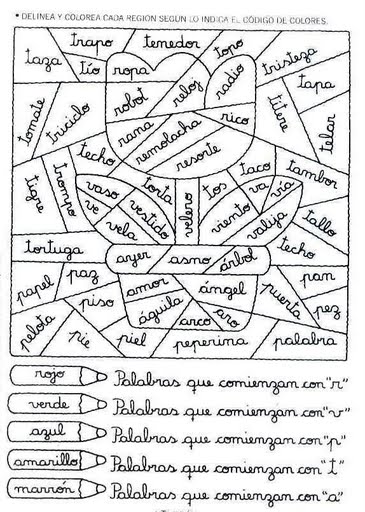 • DELINEA Y COLOREA CADA REGION SEGUN LO INDICA EL CÓDIGO DE COLORES.
trapo tenedor topo
taza tío ropa radio tristeza
tapa
tomate triciclo robot reloj títere
rana rico telar
remolacha
techo resorte taco tambor
tigre trompo vaso torta velero tos va vía
ve vestido viento tallo
vela valija
tortuga ayer asno árbol techo
papel paz pan
piso amor ángel puerta pez
águila
pelota pie piel arco aro
peperina palabra
rojo Palabras que comienzan con "r"
verde Palabras que comienzan con "v"
azul Palabras que comienzan con "p"
amarillo Palabras que comienzan con "t"
marrón Palabras que comienzan con "a"